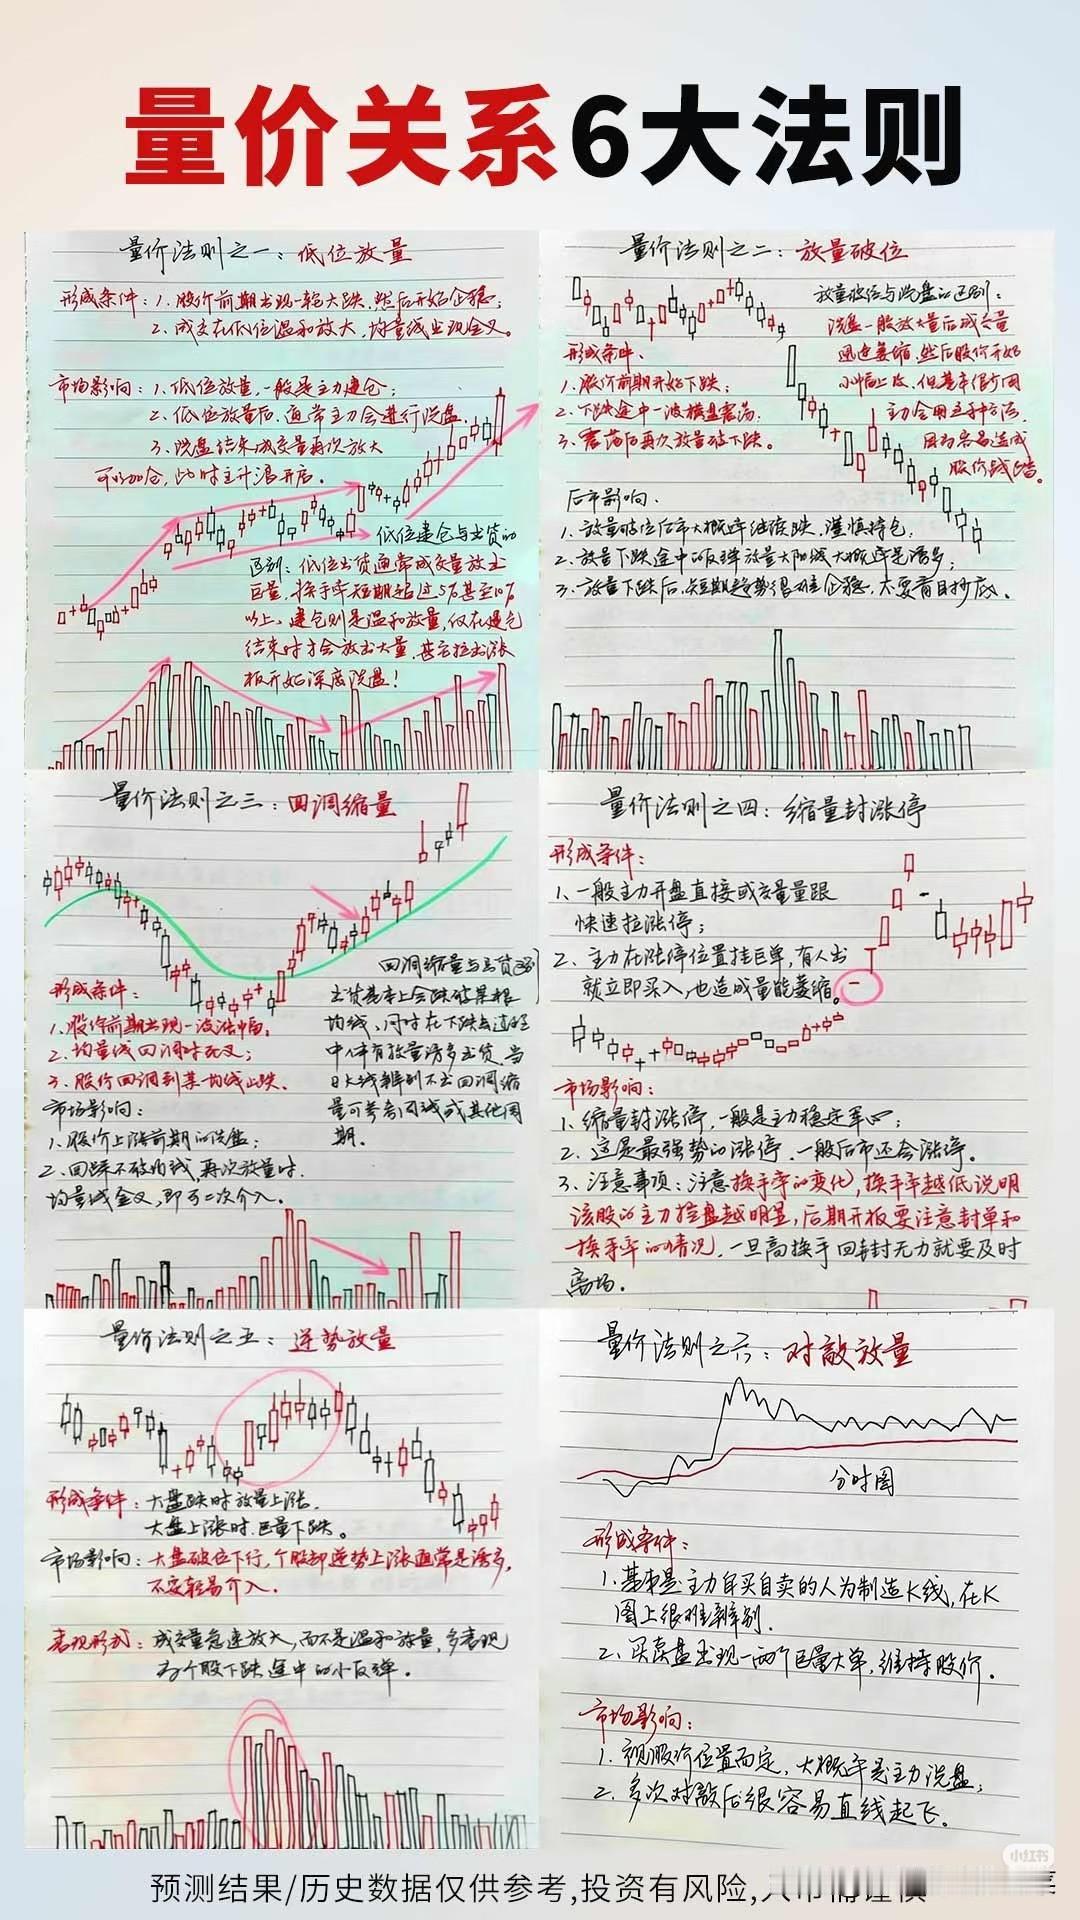 量价关系6大法则
量价法则之一：低位放量
形成条件：1、股价前期出现一轮大跌，然后开始企稳；
2、成交在低位温和放大，均量线出现金叉。
市场影响：1、低位放量，一般是主力建仓；
2、低位放量后，通常主力会进行洗盘
3、洗盘结束成交量再次放大
可以加仓，此时主升浪开启。
低位建仓与出货的
区别：低位出货通常成交量放出
巨量，换手率短期超过5%甚至10%
以上，建仓则是温和放量，仅在建仓
结束时才会放出大量，甚至拉出涨
板开始深度洗盘！
量价法则之二：放量破位
放量破位与洗盘的区别：
洗盘一般放大量后成交量
迅速萎缩，然后股价开始
小幅上攻，但基本很少用
主力会用这种方法，
因为容易造成
股价践踏。
形成条件、
1、股价前期开始下跌；
2、下跌途中一波横盘震荡；
3、震荡后再次放量破下跌。
后市影响、
1、放量破位后市大概率继续跌，谨慎持仓；
2、放量下跌途中的反弹放量大阳线大概率是诱多；
3、放量下跌后，短期趋势很难企稳，不要盲目抄底。
量价法则之三：回调缩量
回调缩量与出货区别
出货基本上会跌破某根
均线，同时在下跌过程
中伴有放量诱多出货，当
日K线辨别不出回调缩
量可参考周线或其他周
期。
形成条件：
1、股价前期出现一波涨幅；
2、均量线回调时死叉；
3、股价回调到某均线止跌、
市场影响：
1、股价上涨前期的洗盘；
2、回踩不破均线，再次放量时、
均量线金叉，即可二次介入。
量价法则之四：缩量封涨停
形成条件：
1、一般主力开盘直接或少量量跟
快速拉涨停；
2、主力在涨停位置挂巨单，有人出
就立即买入，也造成量能萎缩。
市场影响：
1、缩量封涨停，一般是主力稳定军心；
2、这是最强势的涨停，一般后市还会涨停。
3、注意事项：注意换手率的变化，换手率越低说明
该股的主力控盘越明显，后期开板要注意封单和
换手率的情况，一旦高换手回封无力就要及时
离场．
量价法则之五：逆势放量
形成条件：大盘跌时放量上涨、
大盘上涨时、巨量下跌。
市场影响：大盘破位下行，个股却逆势上涨通常是诱多，
不要轻易介入．
表现形式：成交量急速放大，而不是温和放量，多表现
为个股下跌途中的小反弹．
量价法则之六：对敲放量
分时图
形成条件：
1、基本是主力自买自卖的人为制造K线，在K
图上很难辨别．
2、买卖盘出现一两个巨量大单，维持股价．
市场影响：
1、视股价位置而定，大概率是主力洗盘；
2、多次对敲后很容易直线起飞．
小红书
预测结果/历史数据仅供参考,投资有风险,